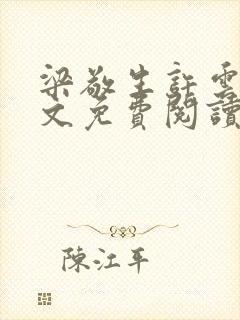 梁敬生許雲
文免費閱讀
陳江平